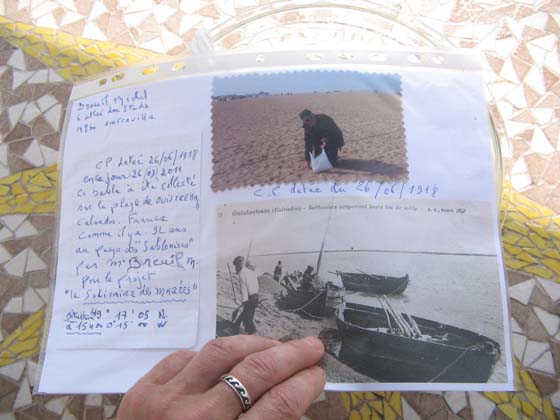 Breuil Michel
6 allée du Stade
14910 ameréville
C P datée 26/06/1918
en ce jour 26/03/2011
Ce sable à été collecté
sur le plage de OUISTREHAM
Calvados. France
Comme il y a 92 ans
au pays des "Sabloniers"
par Mr Breuil M.
pour le projet
"Le Sablier des Marées"
49° 17' 05 N
à 15H00 0° 15' 00 W
C P datée du 26/06/1918
Ouistreham (Calvados) - Sablonniers emportant leurs bas de sable